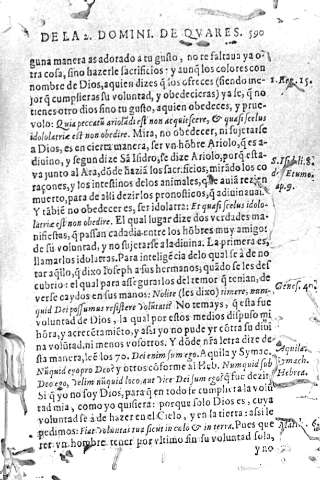 DE LA 2. DOMINI. DE QVARES. 590
guna manera as adorado a tu gusto, no te faltaua ya o
tra cosa, sino hazerle sacrificios: y aunq̃ los colores con
nombre de Dios, aquien dizes q̃ los ofreces (siendo me-
jor q̃ cumplieras su voluntad, y obedecieras) ya se, q̃ no
tienes otro dios sino tu gusto, aquien obedeces, y prue-
volo: Quia peccatũ ariolãdi est non acquiescere, & quasi scelus
idololatriæ est non obedire. Mira, no obedecer, ni sujetarse
a Dios, es en cierta manera, ser vn hõbre Ariolo, q̃ es a-
diuino, y segun dize Sã Isidro, se dize Ariolo, porq̃ esta-
va junto al Ara, dõde haziã los sacrificios, mirãdo los co
raçones, y los intestinos de los animales, que auiã rezien
muerto, para de alli dezirlos pronosticos, q̃ adiuinauã.
Y tãbiẽ no obedecer es, ser idolatra: Et quasi scelus idolo-
latriæ est non obedire. El qual lugar dize dos verdades ma-
nifiestas, q̃ passan cadadia entre los hõbres muy amigos
de su voluntad, y no sujetarse a la diuina. La primera es,
llamarlos idolatras. Para inteligẽcia delo qual se à de no
tar aq̃llo, q̃ dixo Ioseph a sus hermanos, quãdo se les des
cubrio: el qual para assegurarlos del temor q̃ tenian, de
verse caydos en sus manos: Nolite (les dixo) timere, nun-
quid Dei possumus resistere volũtati? No temays, q̃ esta fue
voluntad de Dios, la qual por estos medios dispuso mi
hõra, y acrecẽtamiẽto, y assi yo no pude yr cõtra su diui
na volũtad, ni menos vosotros. Y dõde nr̃a letra dize de-
sta manera, leẽ los 70. Dei enim sum ego. Aquila y Symac.
Nũquid eyopro Deo? y otros cõforme al Heb. Numquid sub
Deo ego, Velim nũquid loco, aut vice Dei sum ego? q̃ fue dezir
Si q̃ yo no soy Dios, para q̃ en todo se cumpla la volũ
tad mia, como yo quisiera: porque solo Dios es, cuya
voluntad se à de hazer en el Cielo, y en la tierra: assi le
pedimos: Fiat voluntas tua sicut in cœlo & in terra. Pues que
rer vn hombre tener por vltimo fin su voluntad sola,
y no
1. Reg. 15.
S. Isid. l. 8.
de Etymo.
ap. 9.
Genes. 4
Aquila.
Symach.
Hebræa.
6.